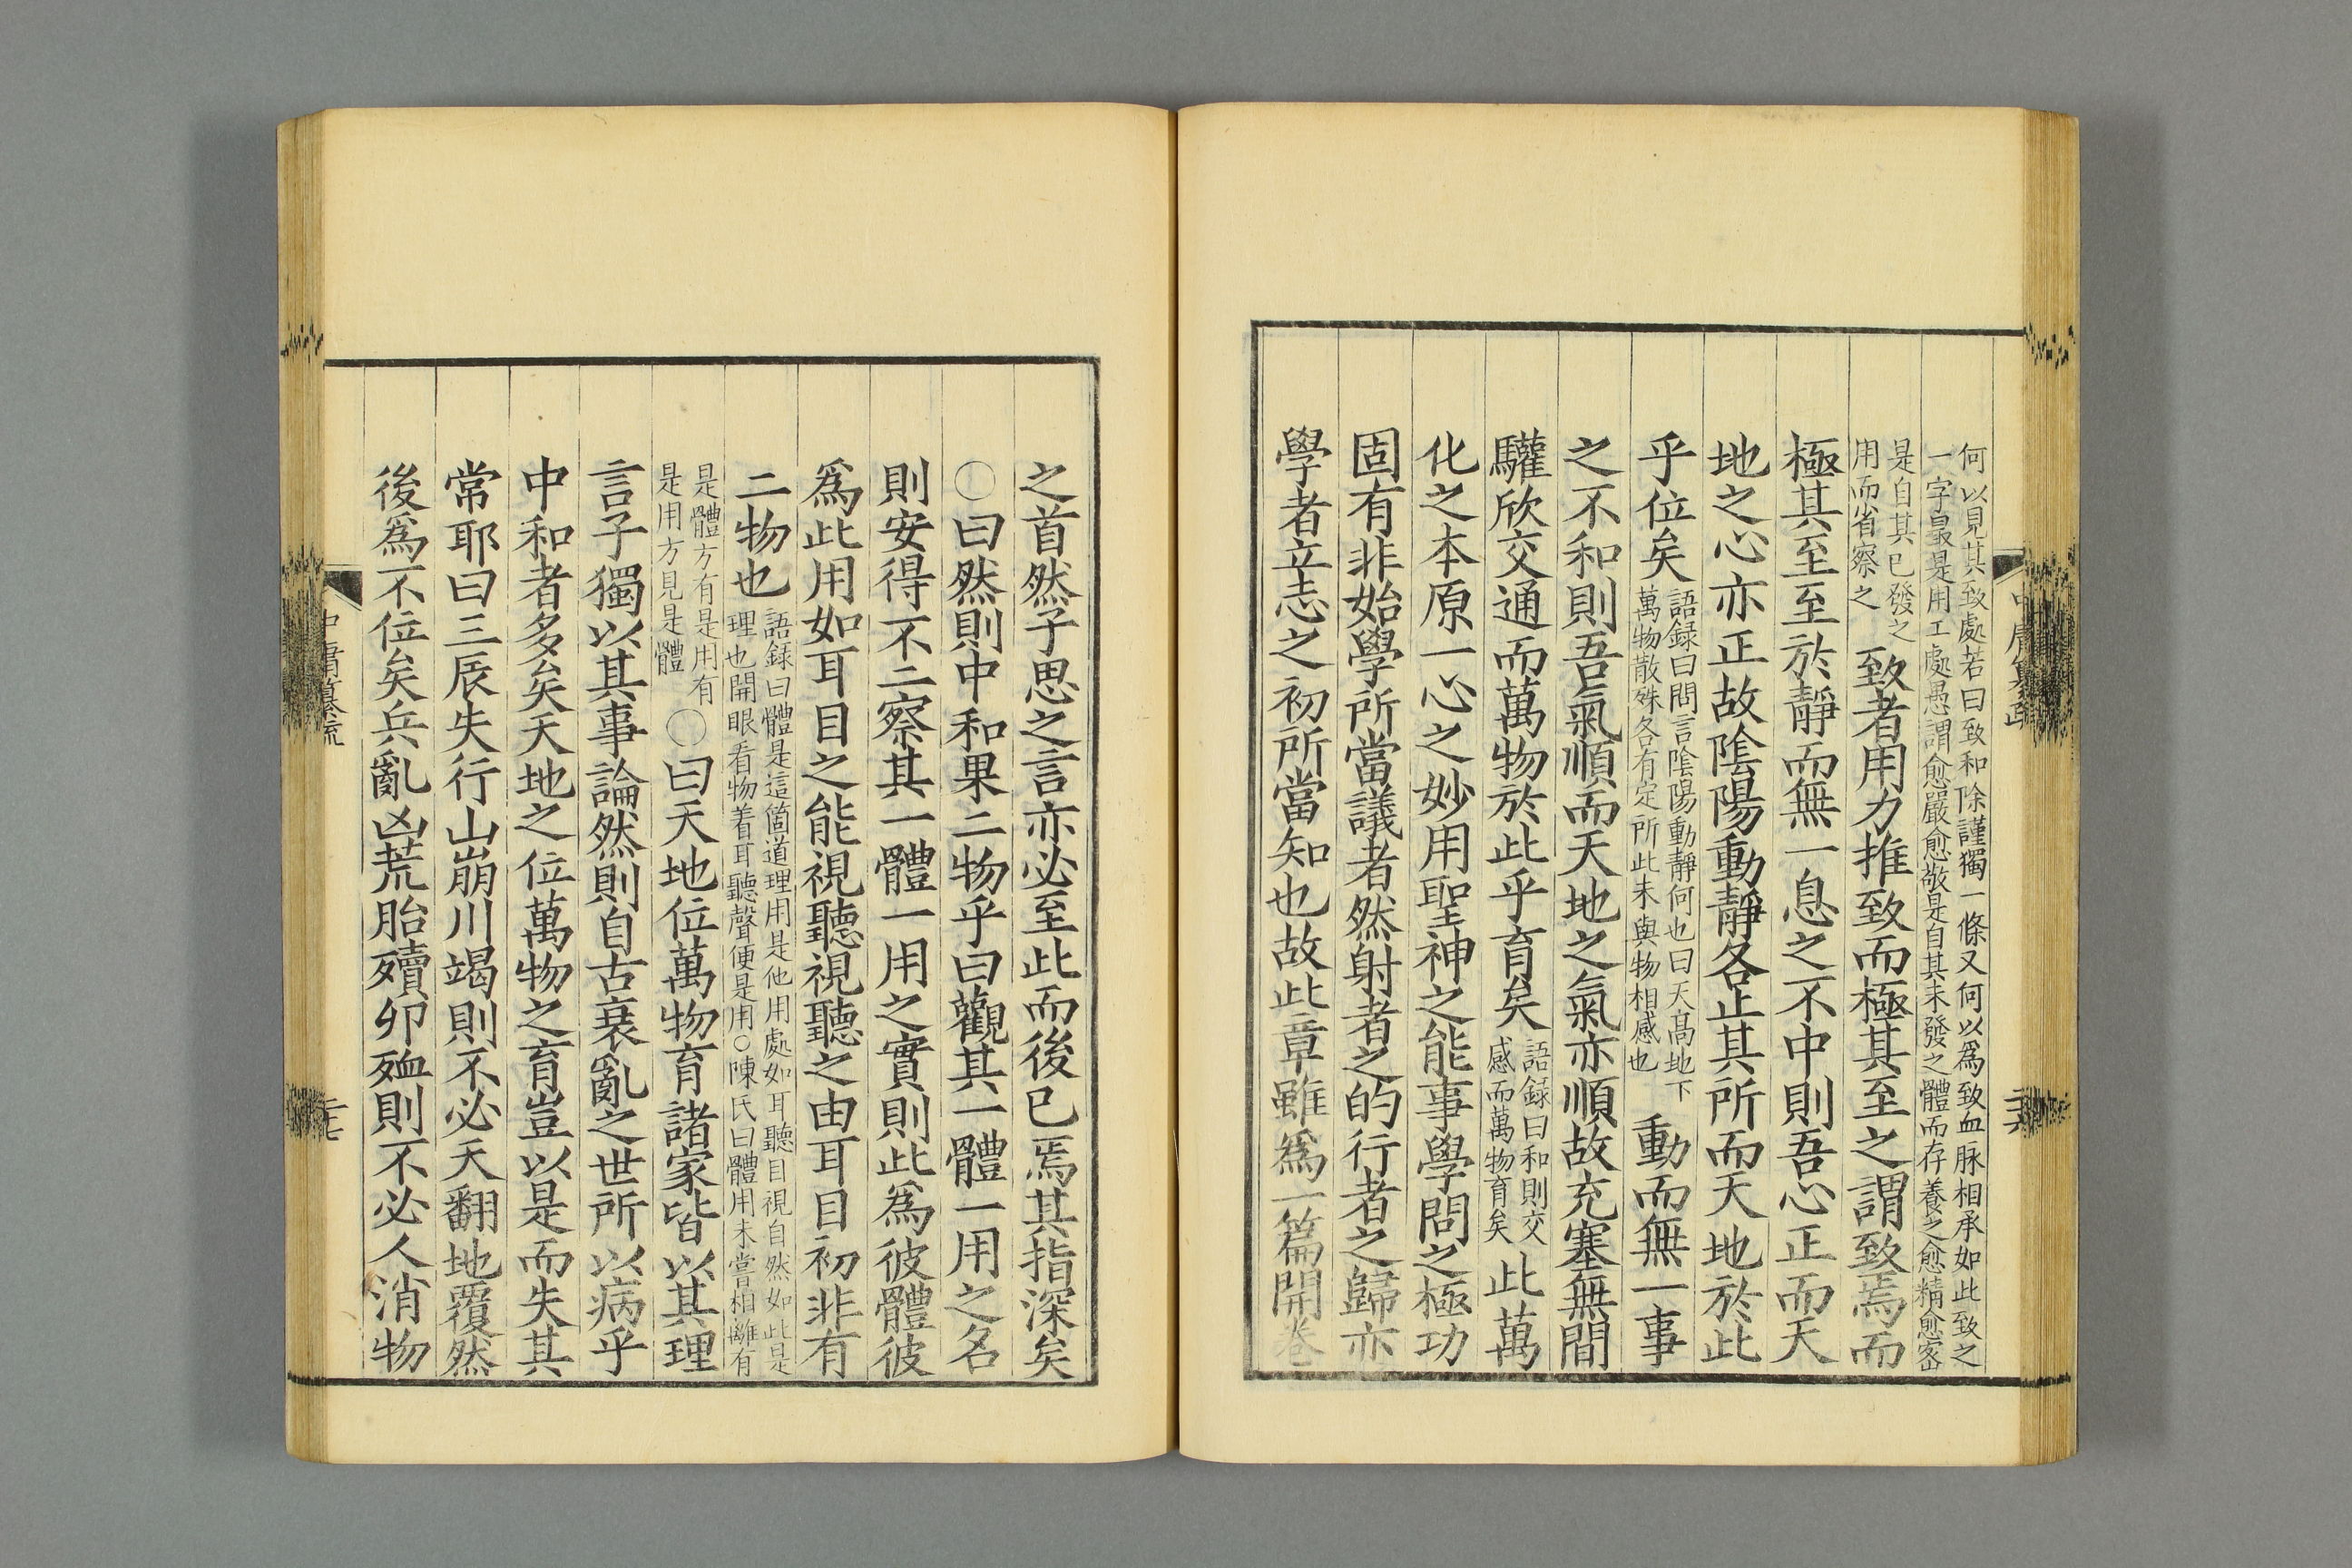 何以見其致處若曰致和除謹獨一條又何以爲致血脉相承如此致之
一字最是用工處愚謂愈嚴愈敬是自其未發之體而存養之愈精愈密
是自其已發之
用而省察之
致者用力推致而極其至之謂致焉而
極其至至於靜而無一息之不中則吾心正而天
地之心亦正故隂陽動靜各止其所而天地於此
乎位矣
語録曰問言隂陽動靜何也曰天高地下
萬物散殊各有定所此未與物相感也
動而無一事
之不和則吾氣順而天地之氣亦順故充塞無間
驩欣交通而萬物於此乎育矣
語録曰和則交
感而萬物育矣
此萬
化之本原一心之妙用聖神之能事學問之極功
固有非始學所當議者然射者之的行者之歸亦
學者立志之初所當知也故此章雖爲一篇開卷
之首然子思之言亦必至此而後已焉其指深矣
○曰然則中和果二物乎曰觀其一體一用之名
則安得不二察其一體一用之實則此爲彼體彼
爲此用如耳目之能視聽視聽之由耳目初非有
二物也
語録曰體是這箇道理用是他用處如耳聽目視自然如此是
理也開眼看物着耳聽聲便是用○陳氏曰體用未嘗相離有
是體方有是用有
是用方見是體
○曰天地位萬物育諸家皆以其理
言子獨以其事論然則自古衰亂之世所以病乎
中和者多矣天地之位萬物之育豈以是而失其
常耶曰三辰失行山崩川竭則不必天翻地覆然
後爲不位矣兵亂凶荒胎殰卵殈則不必人消物
中庸纂疏
二十七